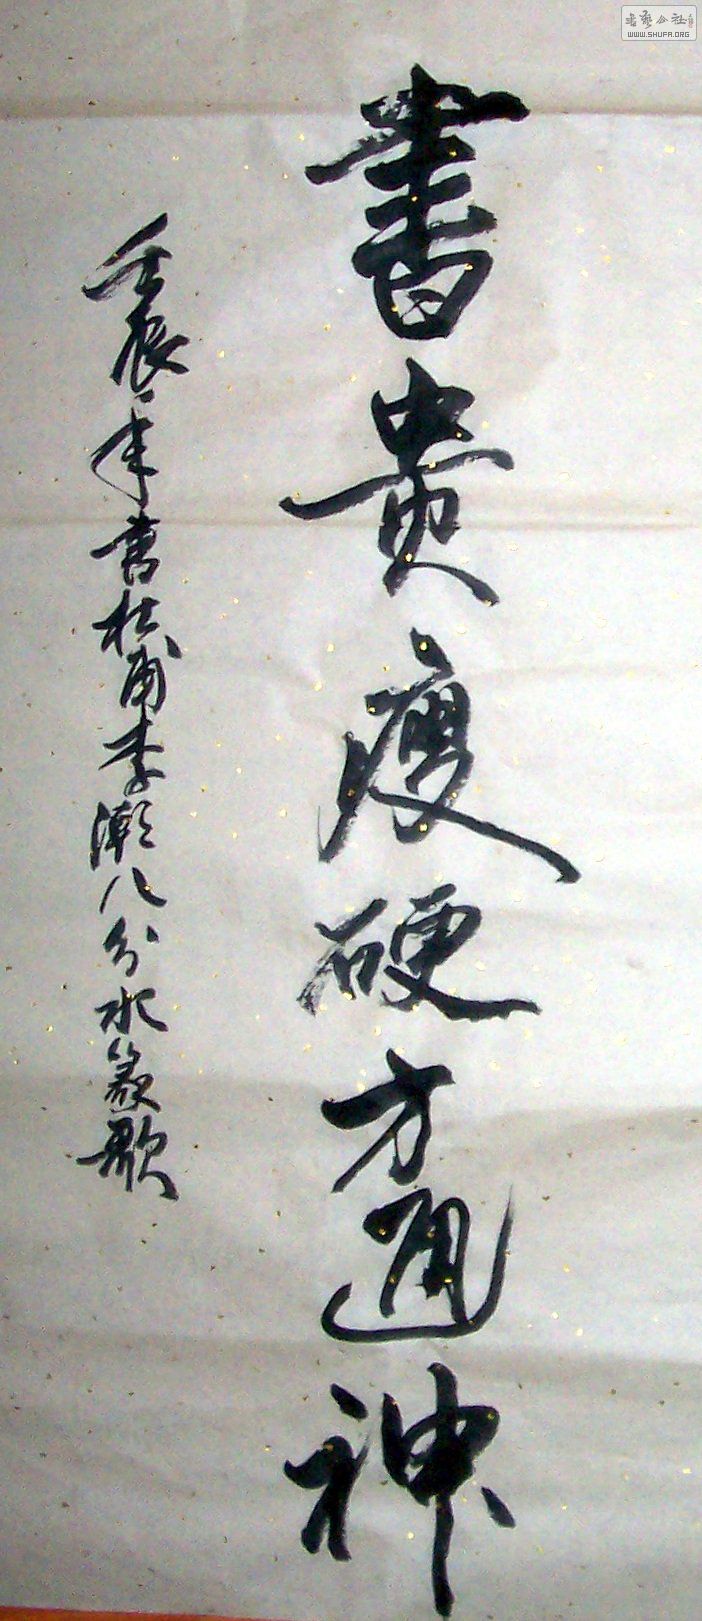 書貴瘦硬方通神
壬辰年書杜甫李潮八分小篆歌
書藝公社
WWW.SHUFA.ORG